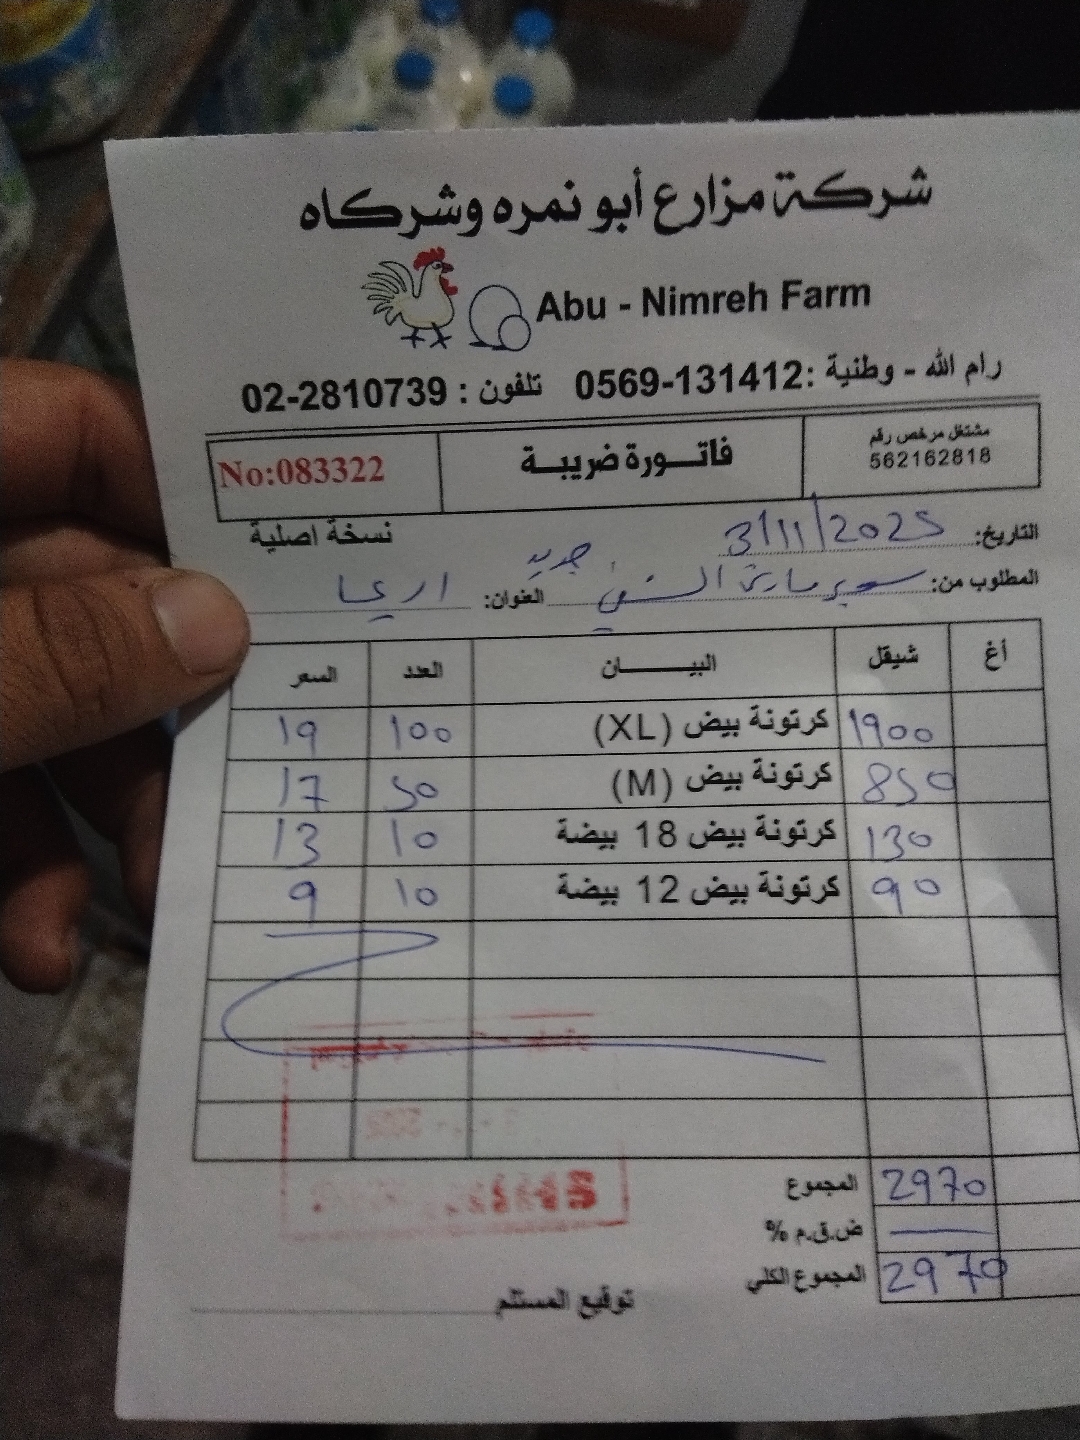 شركة مزارع أبو نمره وشركاه
Abu - Nimreh Farm
رام الله - وطنية :0569-131412 تلفون : 02-2810739
مشتغل مرخص رقم
562162818
فاتـــورة ضريبـــة
No:083322
نسخة اصلية
التاريخ: 3/11/2025
جديد
المطلوب من: سوبر ماركت العنوان: اريحا
أغ شيقل البيـــــــان العدد السعر
1900 كرتونة بيض (XL) 100 19
850 كرتونة بيض (M) 50 17
130 كرتونة بيض 18 بيضة 10 13
90 كرتونة بيض 12 بيضة 10 9
المجموع 2970
ض.ق.م %
المجموع الكلي 2970
توقيع المستلم